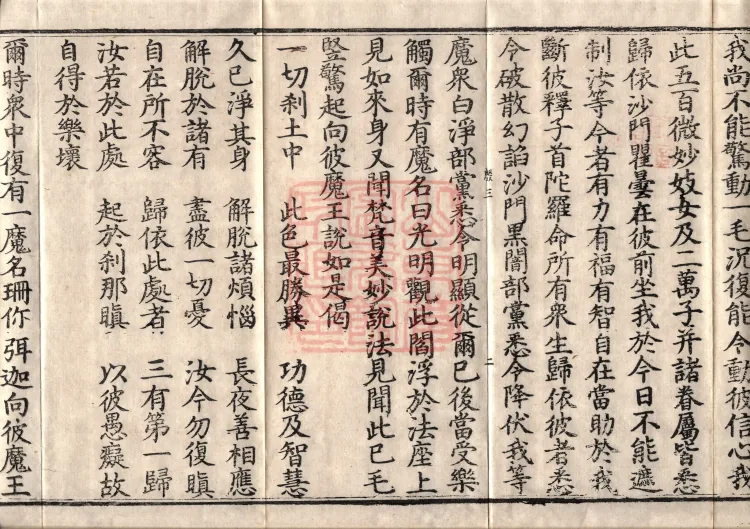 我尚不能驚動一毛況復能令動彼信心我
此五百微妙妓女及二萬子并諸眷屬皆悉
歸依沙門瞿曇在彼前坐我於今日不能遮
制汝等今者有力有福有智自在當助於我
斷彼釋子首陀羅命所有眾生歸依彼者悉
令破散幻諂沙門黑闇部黨悉令降伏我等
魔眾白淨部黨悉令明顯從爾已後當受樂
觸爾時有魔名曰光明觀此閻浮於法座上
見如來身又聞梵音美妙說法見聞此已毛
豎驚起向彼魔王說如是偈
一切剎土中　此色最勝異　功德及智慧
久已淨其身　解脫諸煩惱　長夜善相應
解脫於諸有　盡彼一切憂　汝今勿復瞋
自在所不容　歸依此處者　三有第一歸
汝若於此處　起於剎那瞋　以彼愚癡故
自得於樂壞
爾時眾中復有一魔名珊你弭迦向彼魔王
三
二